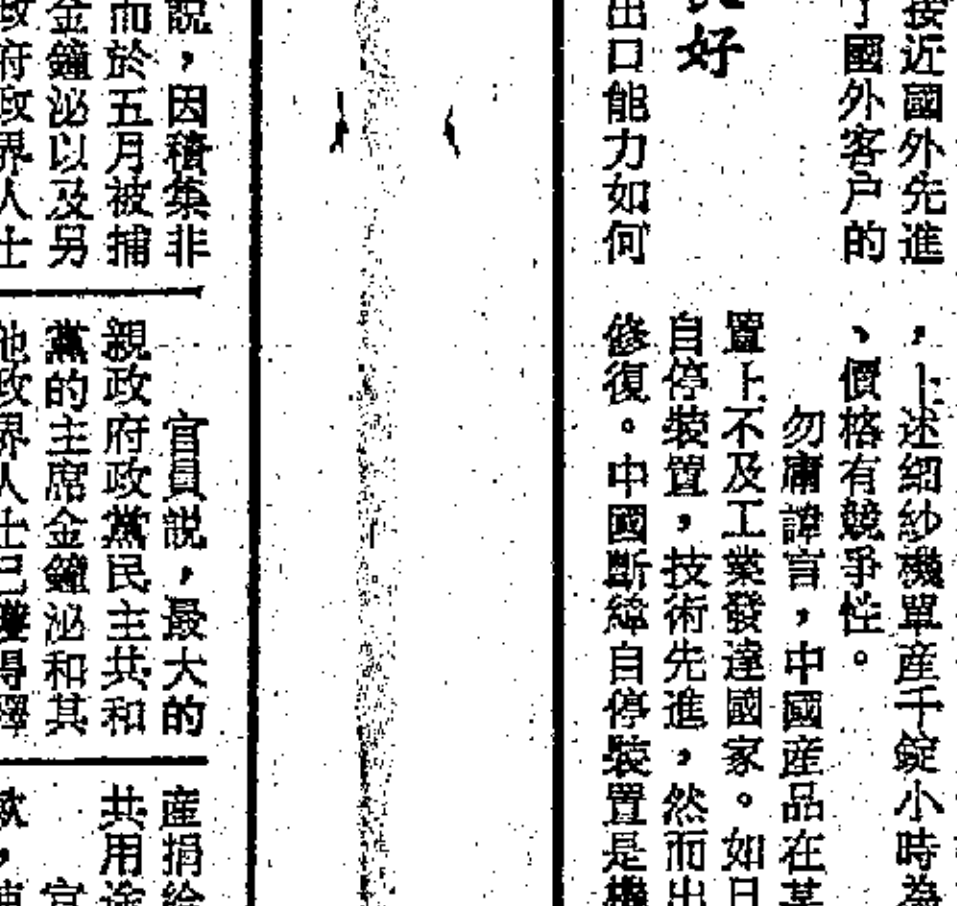 接近國外先進
了國外客户的
好
出口能力如何
，上述細紗機單産千錠小時為
、價格有競爭性。
勿庸諱言，中國産品在某
置上不及工業發達國家。如日
自停裝置，技術先進，然而出
修復。中國斷緯自停裝置是機
説，因積集非
而於五月被捕
金鐘泌以及另
政府政界人士
官員説，最大的
親政府政黨民主共和
黨的主席金鐘泌和其
他政界人士已獲得釋
産捐給
共用途
官
款，